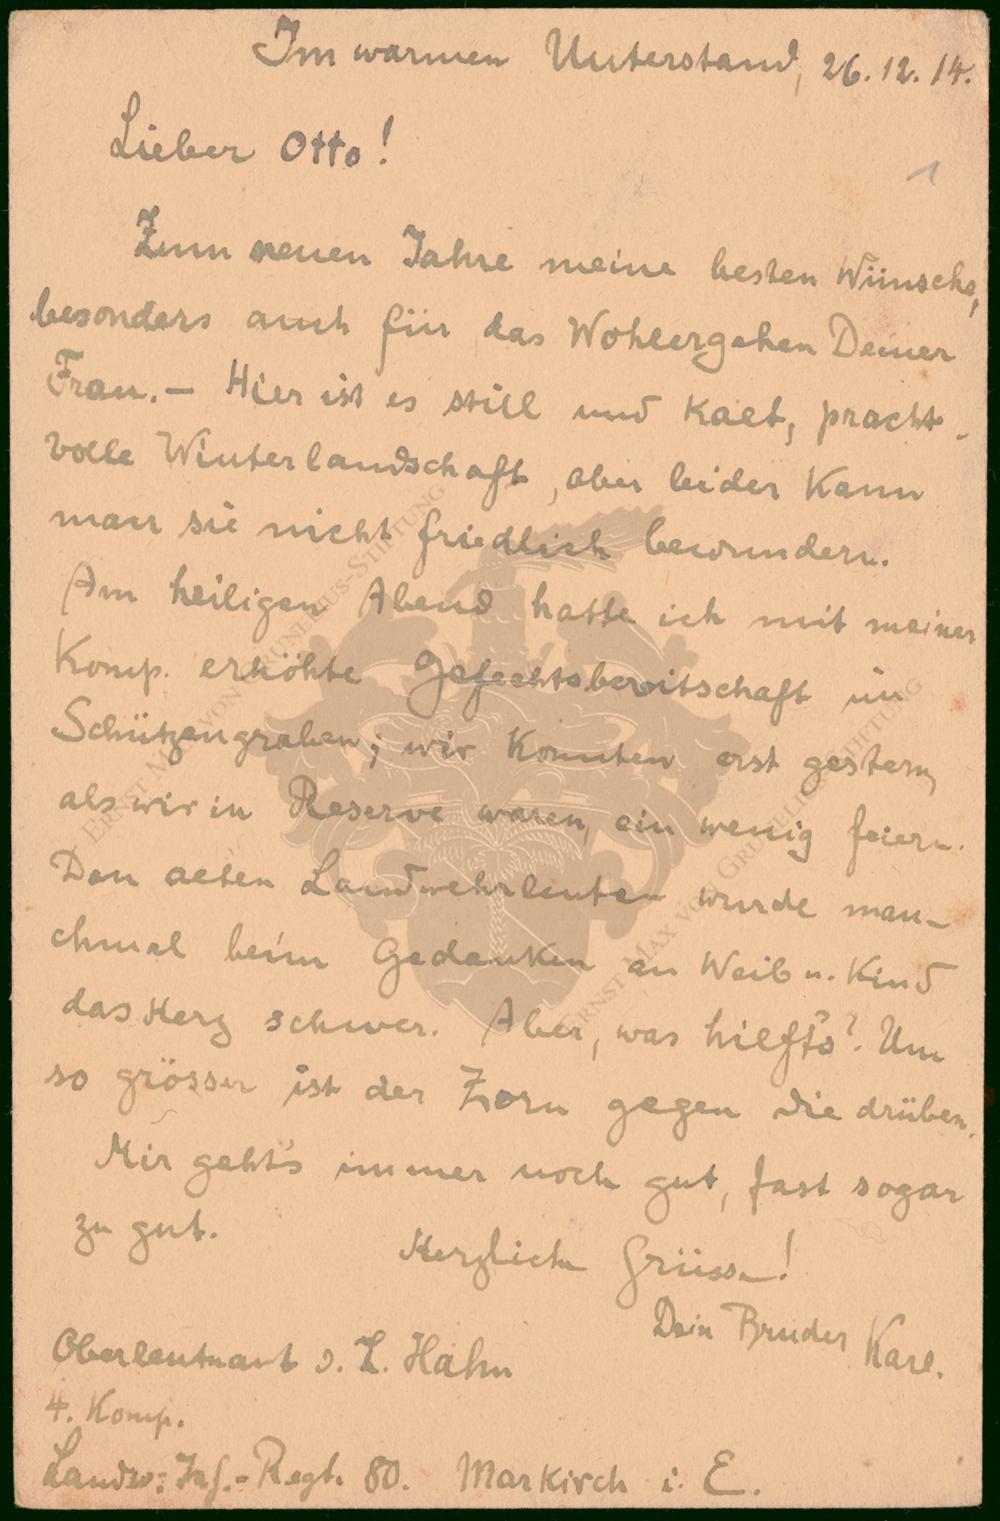 Im warmen Unterstand, 26.12.14.
Lieber Otto!
1
Zum neuen Jahre meine besten Wünsche,
besonders auch für das Wohlergehen Deiner
Frau. — Hier ist es still und kalt, pracht-
volle Winterlandschaft, aber leider kann
man sie nicht friedlich bewundern.
Am heiligen Abend hatte ich mit meiner
Komp. erhöhte Gefechtsbereitschaft im
Schützengraben; wir konnten erst gestern,
als wir in Reserve waren, ein wenig feiern.
Den alten Landwehrleuten wurde man-
chmal beim Gedanken an Weib u. Kind
das Herz schwer. Aber, was hilft's? Um
so grösser ist der Zorn gegen die drüben.
Mir geht's immer noch gut, fast sogar
zu gut.
Herzliche Grüsse!
Dein Bruder Karl.
Oberleutnant d. L. Hahn
4. Komp.
Landw.-Inf.-Regt. 80. Markirch i. E.
ERNST MAX VON GRUNELIUS-STIFTUNG
ERNST MAX VON GRUNELIUS-STIFTUNG